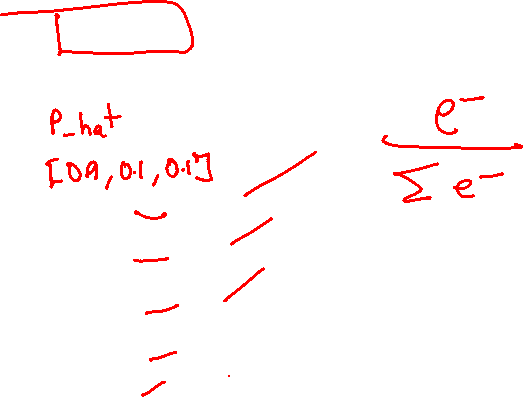 P_hat
[0.9, 0.1, 0.1]
e⁻
Σ e⁻